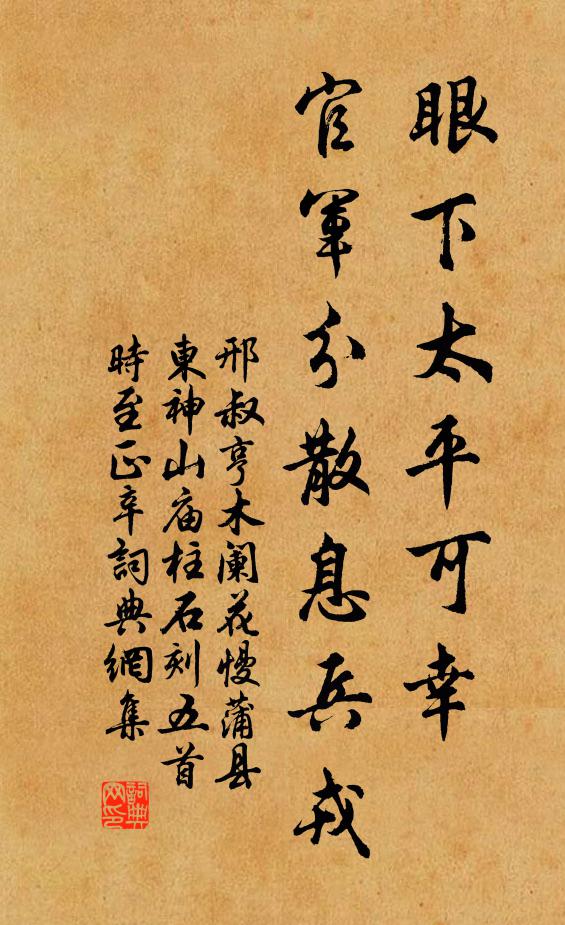 眼下太平可幸
官军分散息兵戎
邢叔亨木阑花慢蒲县
東神山庙柱石刻五首
時至正辛詞典網集
詞典网印